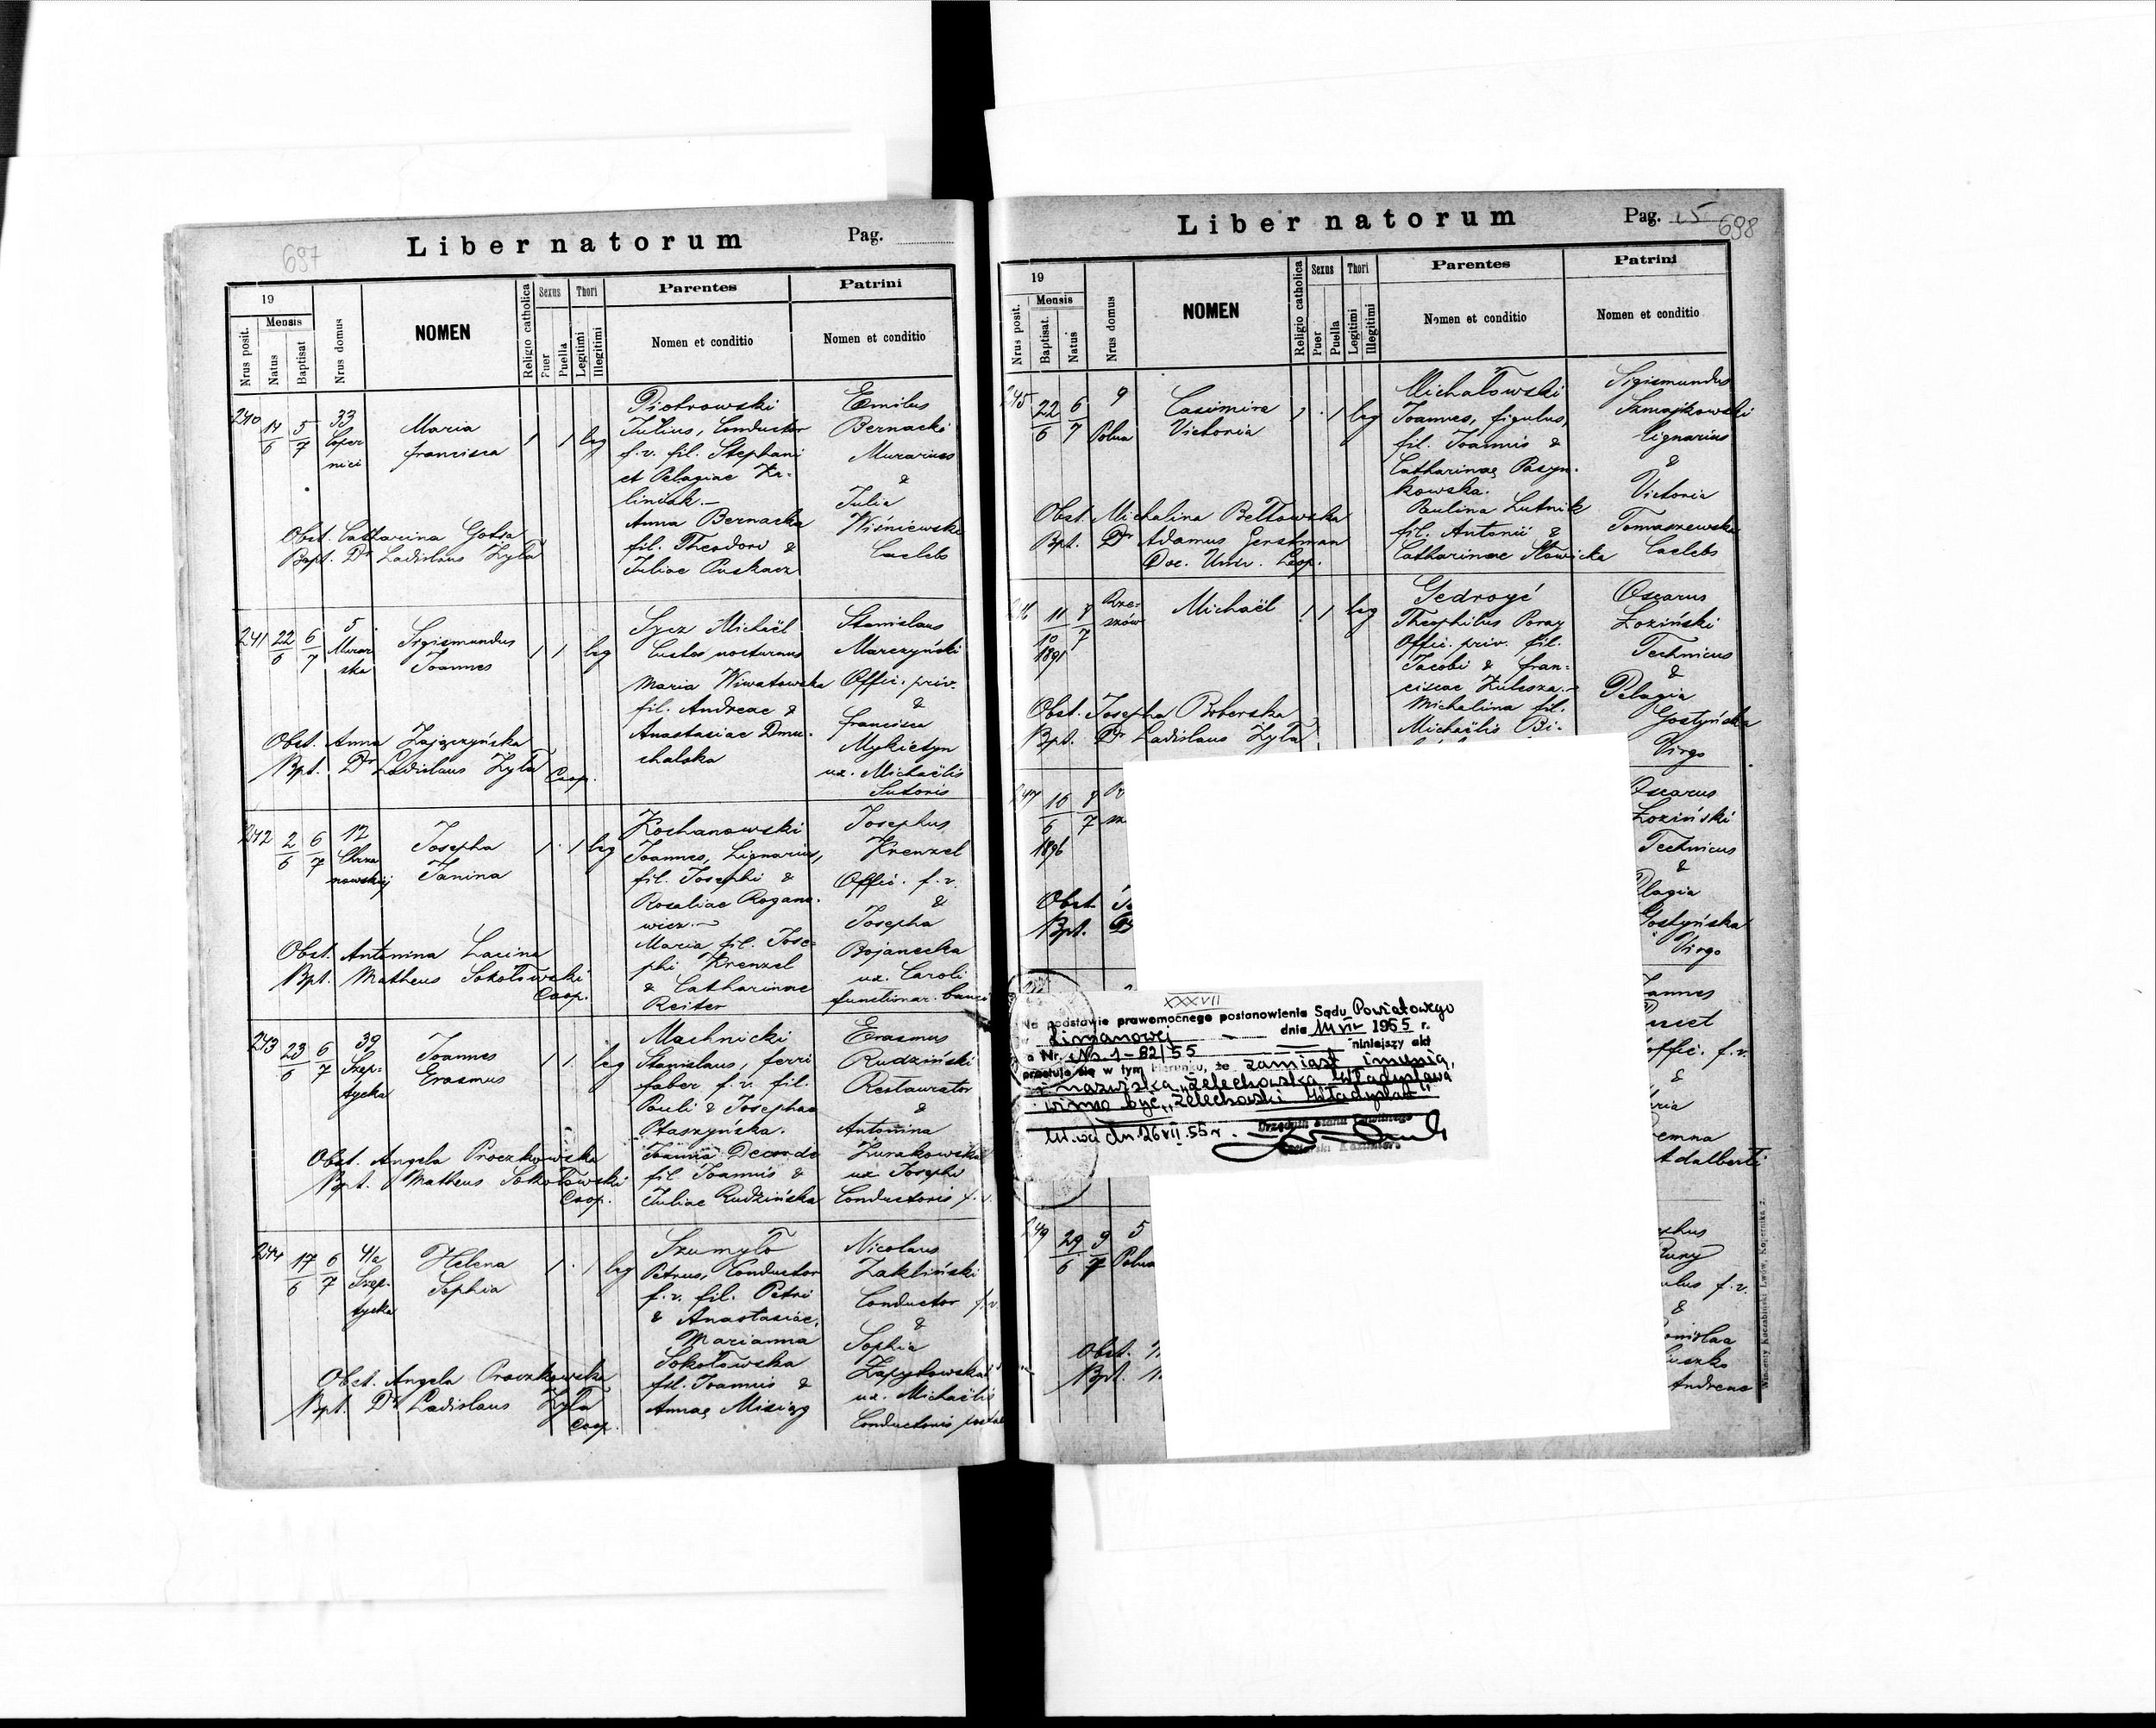 697
Liber natorum
Pag.
19
Nrus posit.
Mensis
Natus
Baptisat
Nrus domus
NOMEN
Religio catholica
Sexus
Puer
Puella
Thori
Legitimi
Illegitimi
Parentes
Nomen et conditio
Patrini
Nomen et conditio
240
5/7
33
Maria
Francisca
1 1 leg
Piotrowski
Julius, Conductor
f. v. fil. Stephani
et Pelagiae
Anna Bernacka
fil. Theodori &
Juliae Puskarz
Emilus
Bernacki
Murarius
&
Julia
Wiśniewska
Caelebs
Obst. Catharina
Bapt. Dr Ladislaus Zyła
241
22/6
6/7
5
Sigismundus
Joannes
1 1 leg
Sycz Michaël
Custos nocturnus
Maria Wiwatowska
fil. Andreae &
Anastasiae Dmu-
chalska
Stanislaus
Marczyński
Offic. priv.
&
Francisca
Mykietyn
ux. Michaëlis
Sutoris
Obst. Anna Zajączyńska
Bpt. Dr Ladislaus Zyła
Coop.
242
2/6
6/7
12
Chrza
nowskiej
Josepha
Janina
1 1 leg
Kochanowski
Joannes, Lignarius,
fil. Josephi &
Rosaliae Rogano-
wicz.
Maria fil. Jose-
phi Krenzel
& Catharinae
Reiter
Josephus
Krenzel
Offic. f. v.
&
Josepha
Bojanecka
ux. Caroli
functionar. banci
Obst. Antonina Lacina
Bpt. Matheus Sokołowski
Coop.
243
23/6
6/7
39
Szep-
tycka
Joannes
Erasmus
1 1 leg
Machnicki
Stanislaus, ferri
faber f. v. fil.
Pauli & Josephae
Ptaszyńska.
Joanna
fil Joannis &
Juliae Rudzińska
Erasmus
Rudziński
Restaurator
&
Antonina
Żurakowska
ux Josephi
Conductoris f. v.
Obst. Angela Proczkowska
Bpt. Matheus Sokołowski
Coop.
244
17/6
6/7
41a
Szep-
tycka
Helena
Sophia
1 1 leg
Szumyło
Petrus, Conductor
f. v. fil. Petri
& Anastasiae,
Marianna
Sokołowska
fil. Joannis &
Annae
Nicolaus
Zakliński
Conductor f. v.
&
Sophia
ux. Michaëlis
Conductoris
Obst. Angela Proczkowska
Bpt. Dr Ladislaus Zyła
Coop.
Liber natorum
Pag. 15
698
19
Nrus posit.
Mensis
Baptisat.
Natus
Nrus domus
NOMEN
Religio catholica
Sexus
Puer
Puella
Thori
Legitimi
Illegitimi
Parentes
Nomen et conditio
Patrini
Nomen et conditio
245
22/6
6/7
9
Polna
Casimira
Victoria
1 1 leg
Michałowski
Joannes, figulus,
fil. Joannis &
Catharinae Pasyn-
kowska.
Paulina Lutnik
fil. Antonii &
Catharinae Nowicka
Sigismundus
Szmajkowski
lignarius
&
Victoria
Tomaszewska
Caelebs
Obst. Michalina Bełtowska
Bpt. Dr Adamus Gerstman
Doc. Univ. Leop.
11/10
1891
8/7
Rze-
szów
Michaël
1 1 leg
Gedroyć
Theophilus Poray
Offic. priv. fil.
Jacobi & Fran-
ciscae Kulesza.
Michalina fil.
Michaëlis Bi-
Oscarus
Łoziński
Technicus
&
Pelagia
Gostyńska
Virgo
Obst. Josepha Boberska
Bpt. Dr Ladislaus Zyła
16/6
1896
8/7
Oscarus
Łoziński
Technicus
&
Gostyńska
Virgo
Obst.
Bpt.
offic. f. v.
&
Adalberti
XXXVII
Na podstawie prawomocnego postanowienia Sądu Powiatowego
w Limanowej dnia 14 VII 1955 r.
Nr. Ns. 1-82/55 niniejszy akt
prostuje się w tym kierunku, że zamiast imienia,
i nazwiska „Żelechowska Władysława"
winno być „Żelechowski Władysław"
dn. 26 VII. 55 r.
Urzędnik Stanu Cywilnego
Kazimierz
249
29/6
9/7
5
Polna
f. v.
&
Andreae
Obst.
Bpt.
Wincenty Koczabiński Lwów, Kopernika 2.